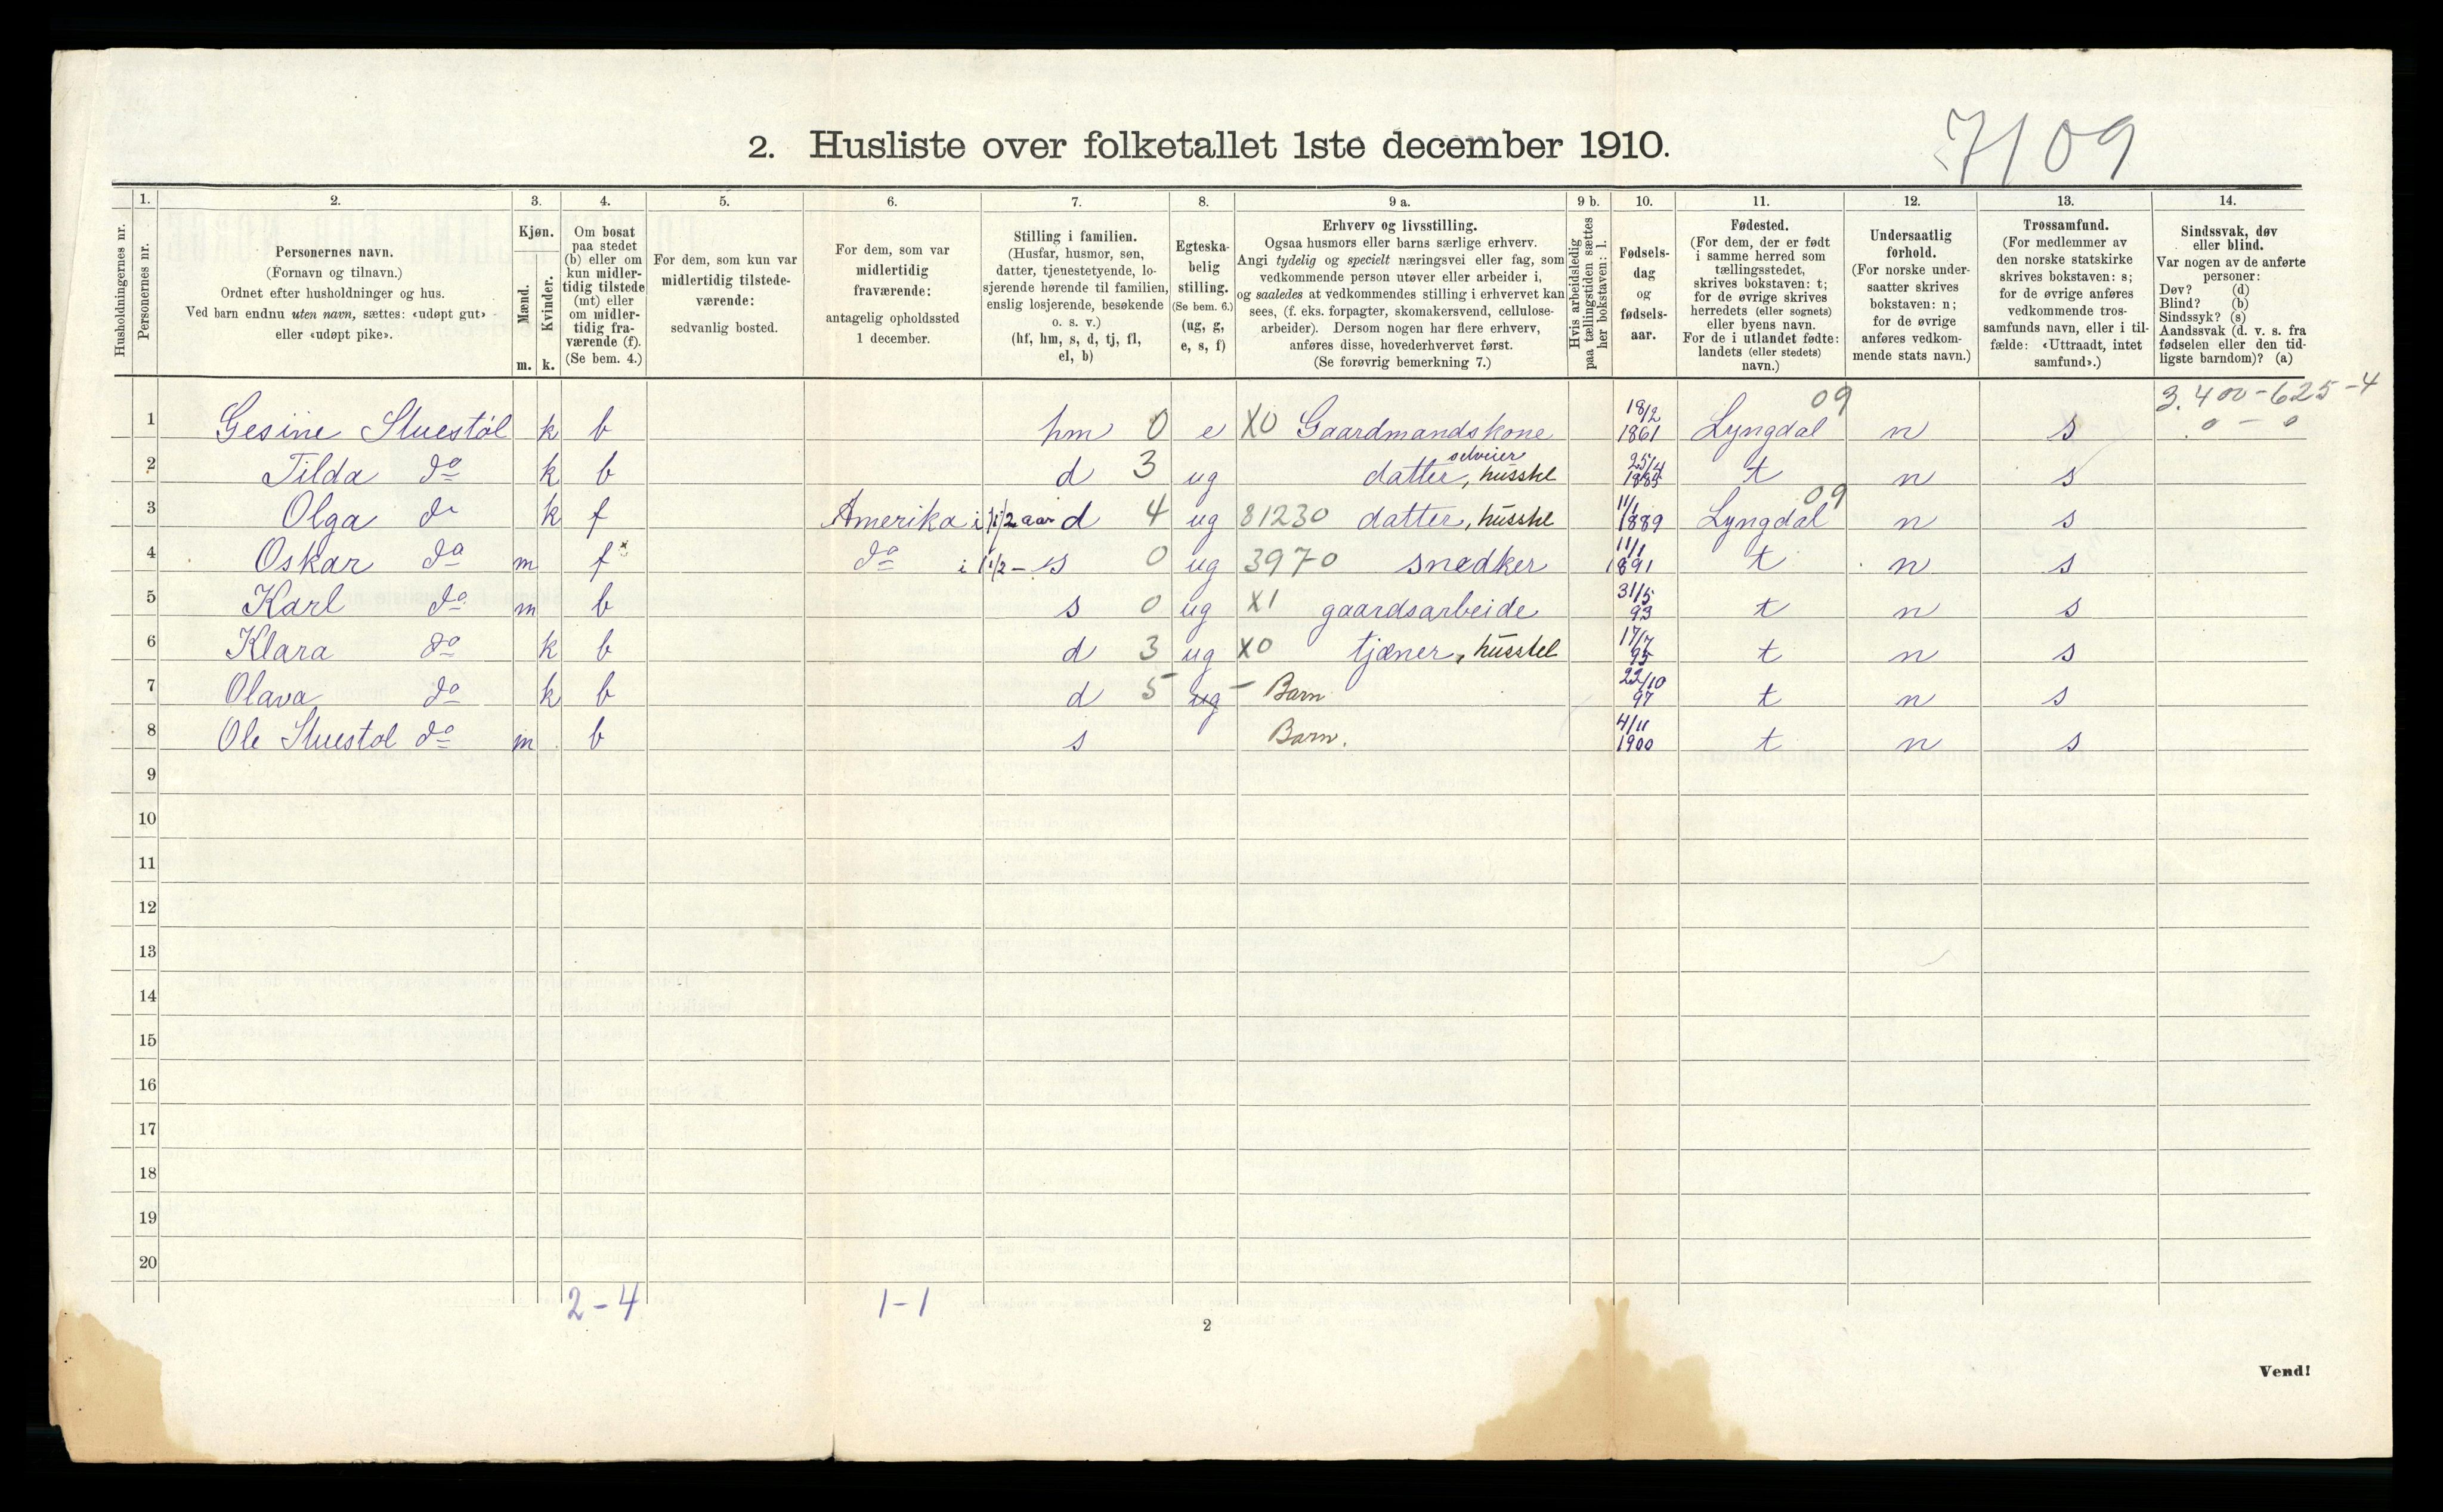 7109
2. Husliste over folketallet 1ste december 1910.
Husholdningernes nr.
1.
Personernes nr.
2.
Personernes navn.
(Fornavn og tilnavn.)
Ordnet efter husholdninger og hus.
Ved barn endnu uten navn, sættes: «udøpt gut»
eller «udøpt pike».
3.
Kjøn.
Mænd.
Kvinder.
m. k.
4.
Om bosat
paa stedet
(b) eller om
kun midler-
tidig tilstede
(mt) eller
om midler-
tidig fra-
værende (f).
(Se bem. 4.)
5.
For dem, som kun var
midlertidig tilstede-
værende:
sedvanlig bosted.
6.
For dem, som var
midlertidig
fraværende:
antagelig opholdssted
1 december.
7.
Stilling i familien.
(Husfar, husmor, søn,
datter, tjenestetyende, lo-
sjerende hørende til familien,
enslig losjerende, besøkende
o. s. v.)
(hf, hm, s, d, tj, fl,
el, b)
8.
Egteska-
belig
stilling.
(Se bem. 6.)
(ug, g,
e, s, f)
9 a.
Erhverv og livsstilling.
Ogsaa husmors eller barns særlige erhverv.
Angi tydelig og specielt næringsvei eller fag, som
vedkommende person utøver eller arbeider i,
og saaledes at vedkommendes stilling i erhvervet kan
sees, (f. eks. forpagter, skomakersvend, cellulose-
arbeider). Dersom nogen har flere erhverv,
anføres disse, hovederhvervet først.
(Se forøvrig bemerkning 7.)
9 b.
Hvis arbeidsledig
paa tællingstiden sættes
her bokstaven: l.
10.
Fødsels-
dag
og
fødsels-
aar.
11.
Fødested.
(For dem, der er født
i samme herred som
tællingsstedet,
skrives bokstaven: t;
for de øvrige skrives
herredets (eller sognets)
eller byens navn.
For de i utlandet fødte:
landets (eller stedets)
navn.)
12.
Undersaatlig
forhold.
(For norske under-
saatter skrives
bokstaven: n;
for de øvrige
anføres vedkom-
mende stats navn.)
13.
Trossamfund.
(For medlemmer av
den norske statskirke
skrives bokstaven: s;
for de øvrige anføres
vedkommende tros-
samfunds navn, eller i til-
fælde: «Uttraadt, intet
samfund».)
14.
Sindssvak, døv
eller blind.
Var nogen av de anførte
personer:
Døv? (d)
Blind? (b)
Sindssyk? (s)
Aandssvak (d. v. s. fra
fødselen eller den tid-
ligste barndom)? (a)
3.400-625-4
0 - 0
1 Gesine Stuestöl k b hm 0 e X0 Gaardmandskone 18/2 1861 Lyngdal 09 n s
2 Tilda do k b d 3 ug datter, selveier husstel 25/4 n s
3 Olga do k f Amerika i 1 1/2 aar d 4 ug 81230 datter, husstel 11/1 1889 Lyngdal 09 n s
4 Oskar do m f x do i 1 1/2 - s 0 ug 3970 snedker 11/1 1891 t n s
5 Karl do m b s 0 ug X1 gaardsarbeide 31/5 93 t n s
6 Klara do k b d 3 ug X0 tjæner, husstel 17/7 95 t n s
7 Olava do k b d 5 ug - Barn 22/10 97 t n s
8 Ole Stuestøl do m b s Barn. 4/11 1900 t n s
9
10
11
12
13
14
15
16
17
18
19
20
2-4 1-1
2
Vend!